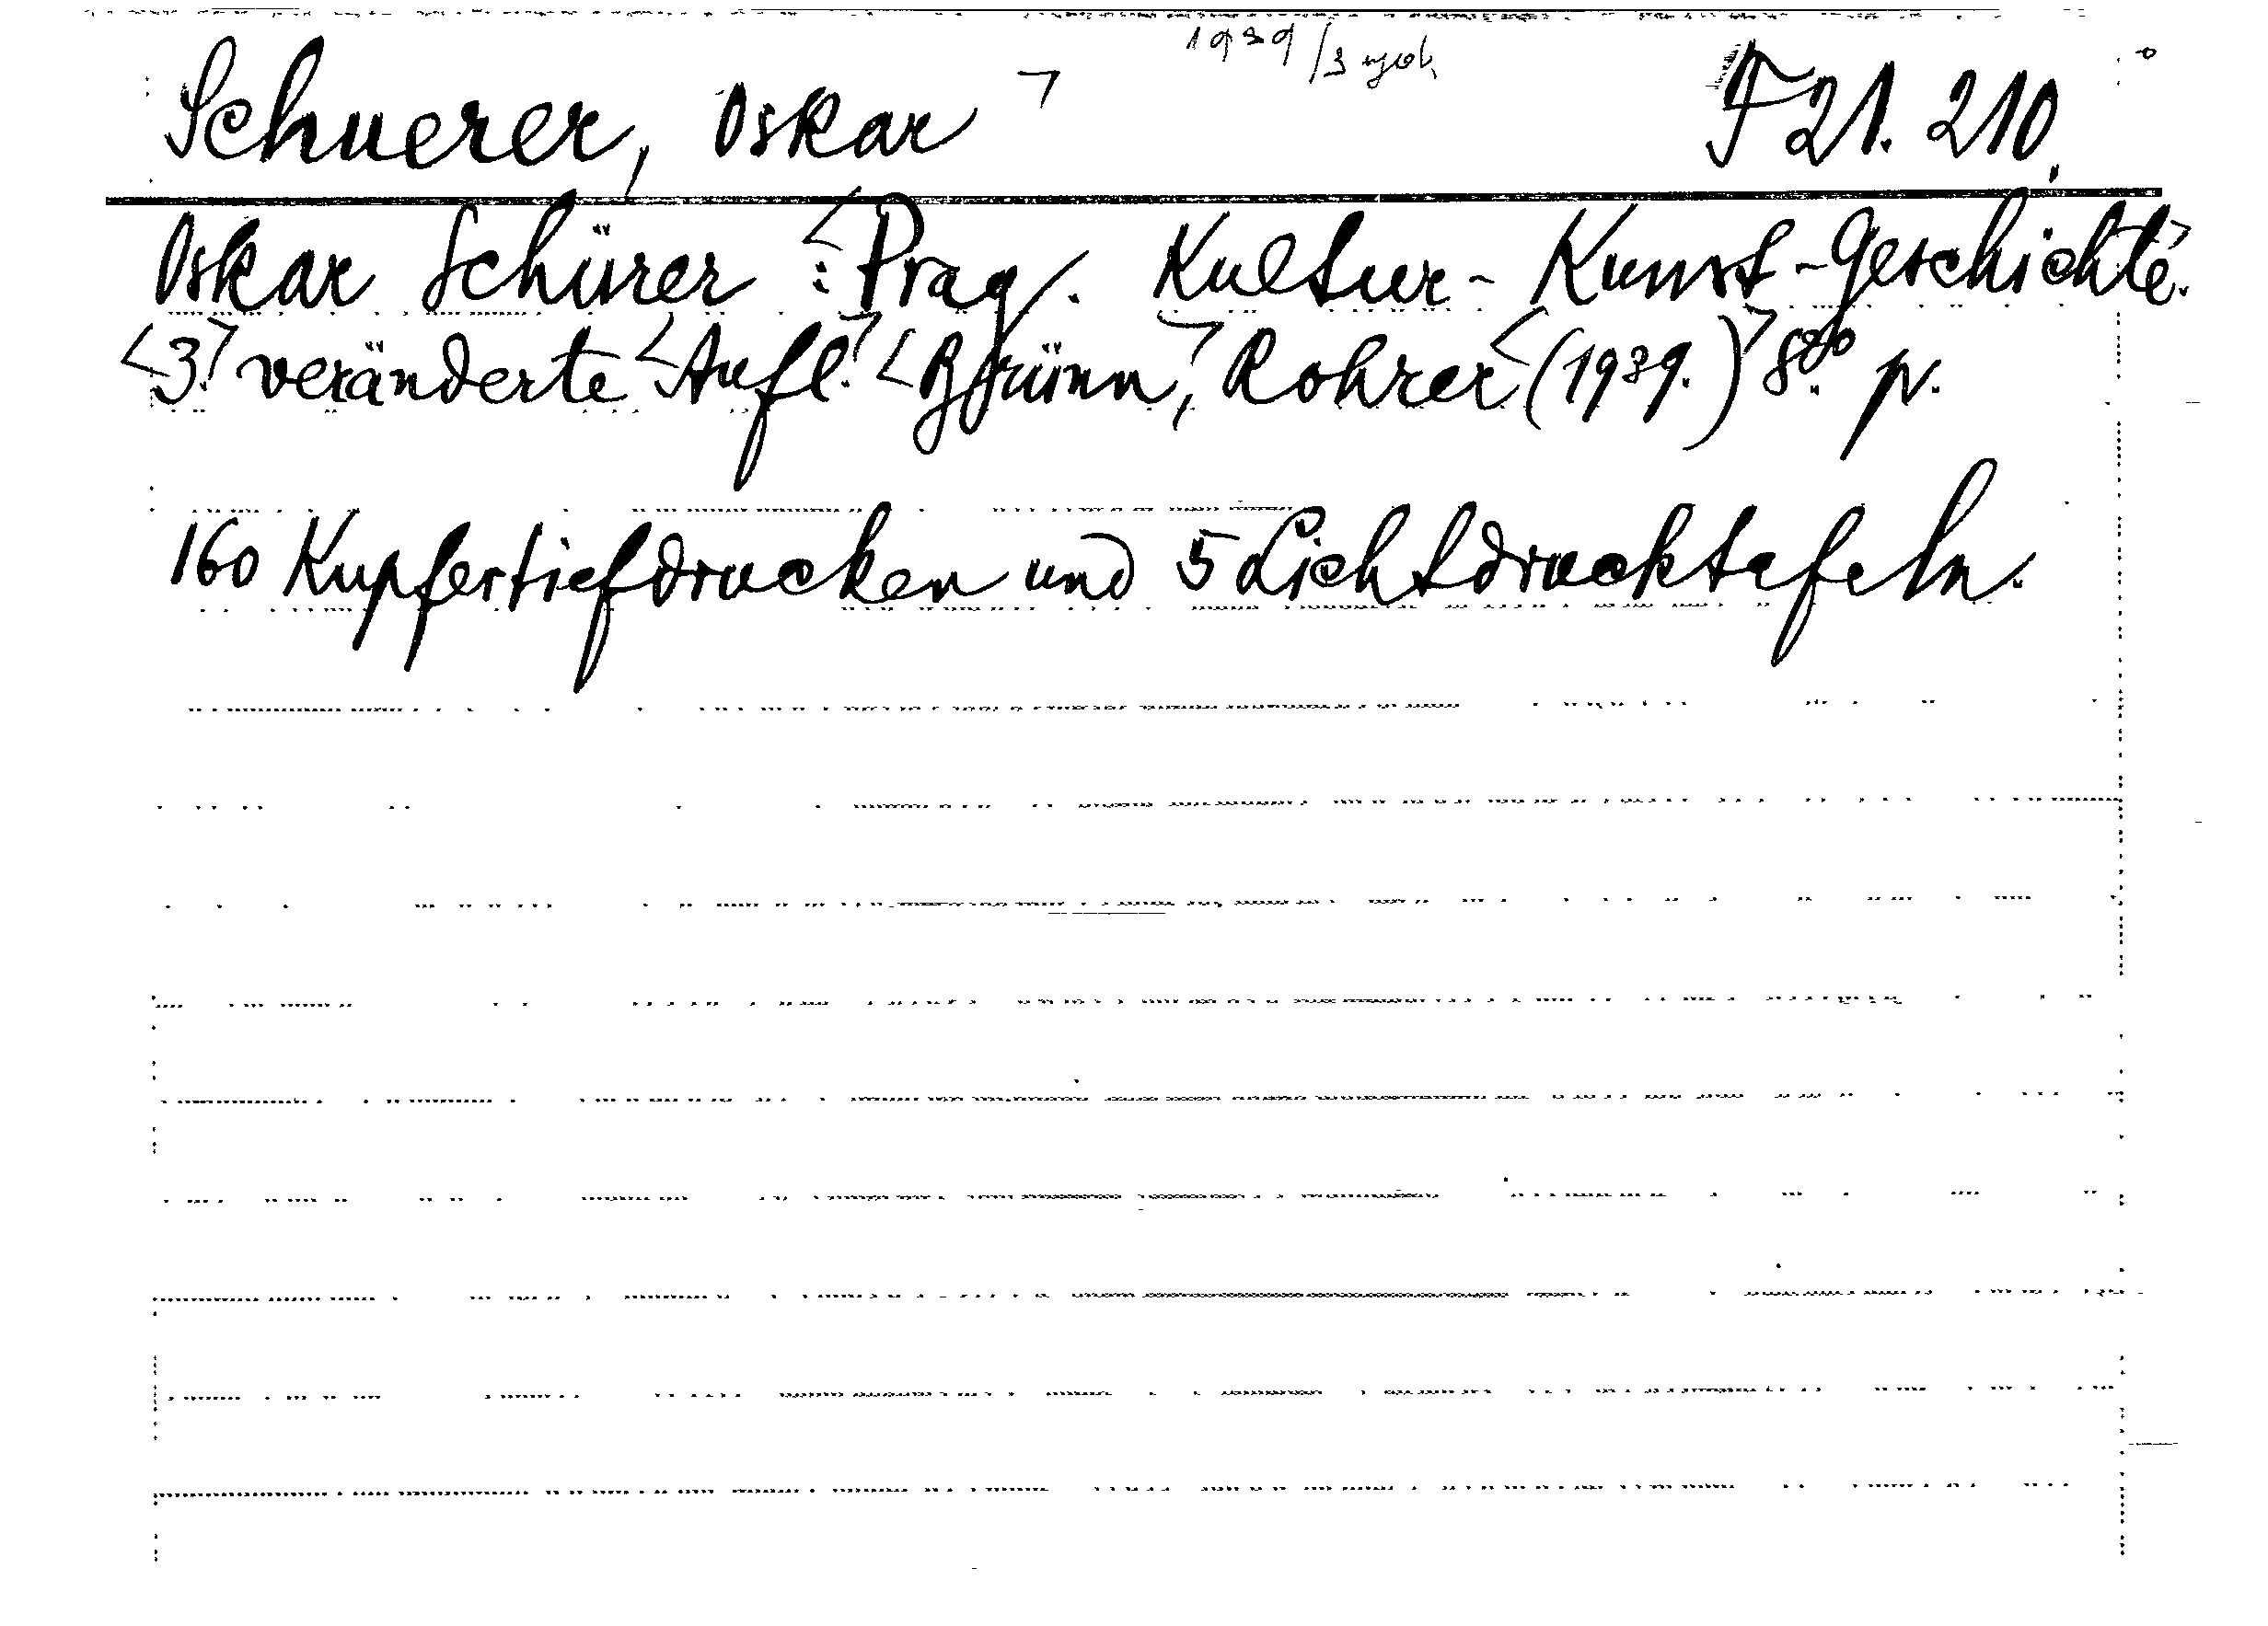 1939/3
Schuerer, Oskar F 21. 210.
Oskar Schürer : Prag. Kultur - Kunst - Geschichte.
<3.> veränderte <Aufl.> <Brünn,> Rohrer <(1939.)> 8° p.
160 Kupfertiefdrucken und 5 Lichtdrucktafeln.